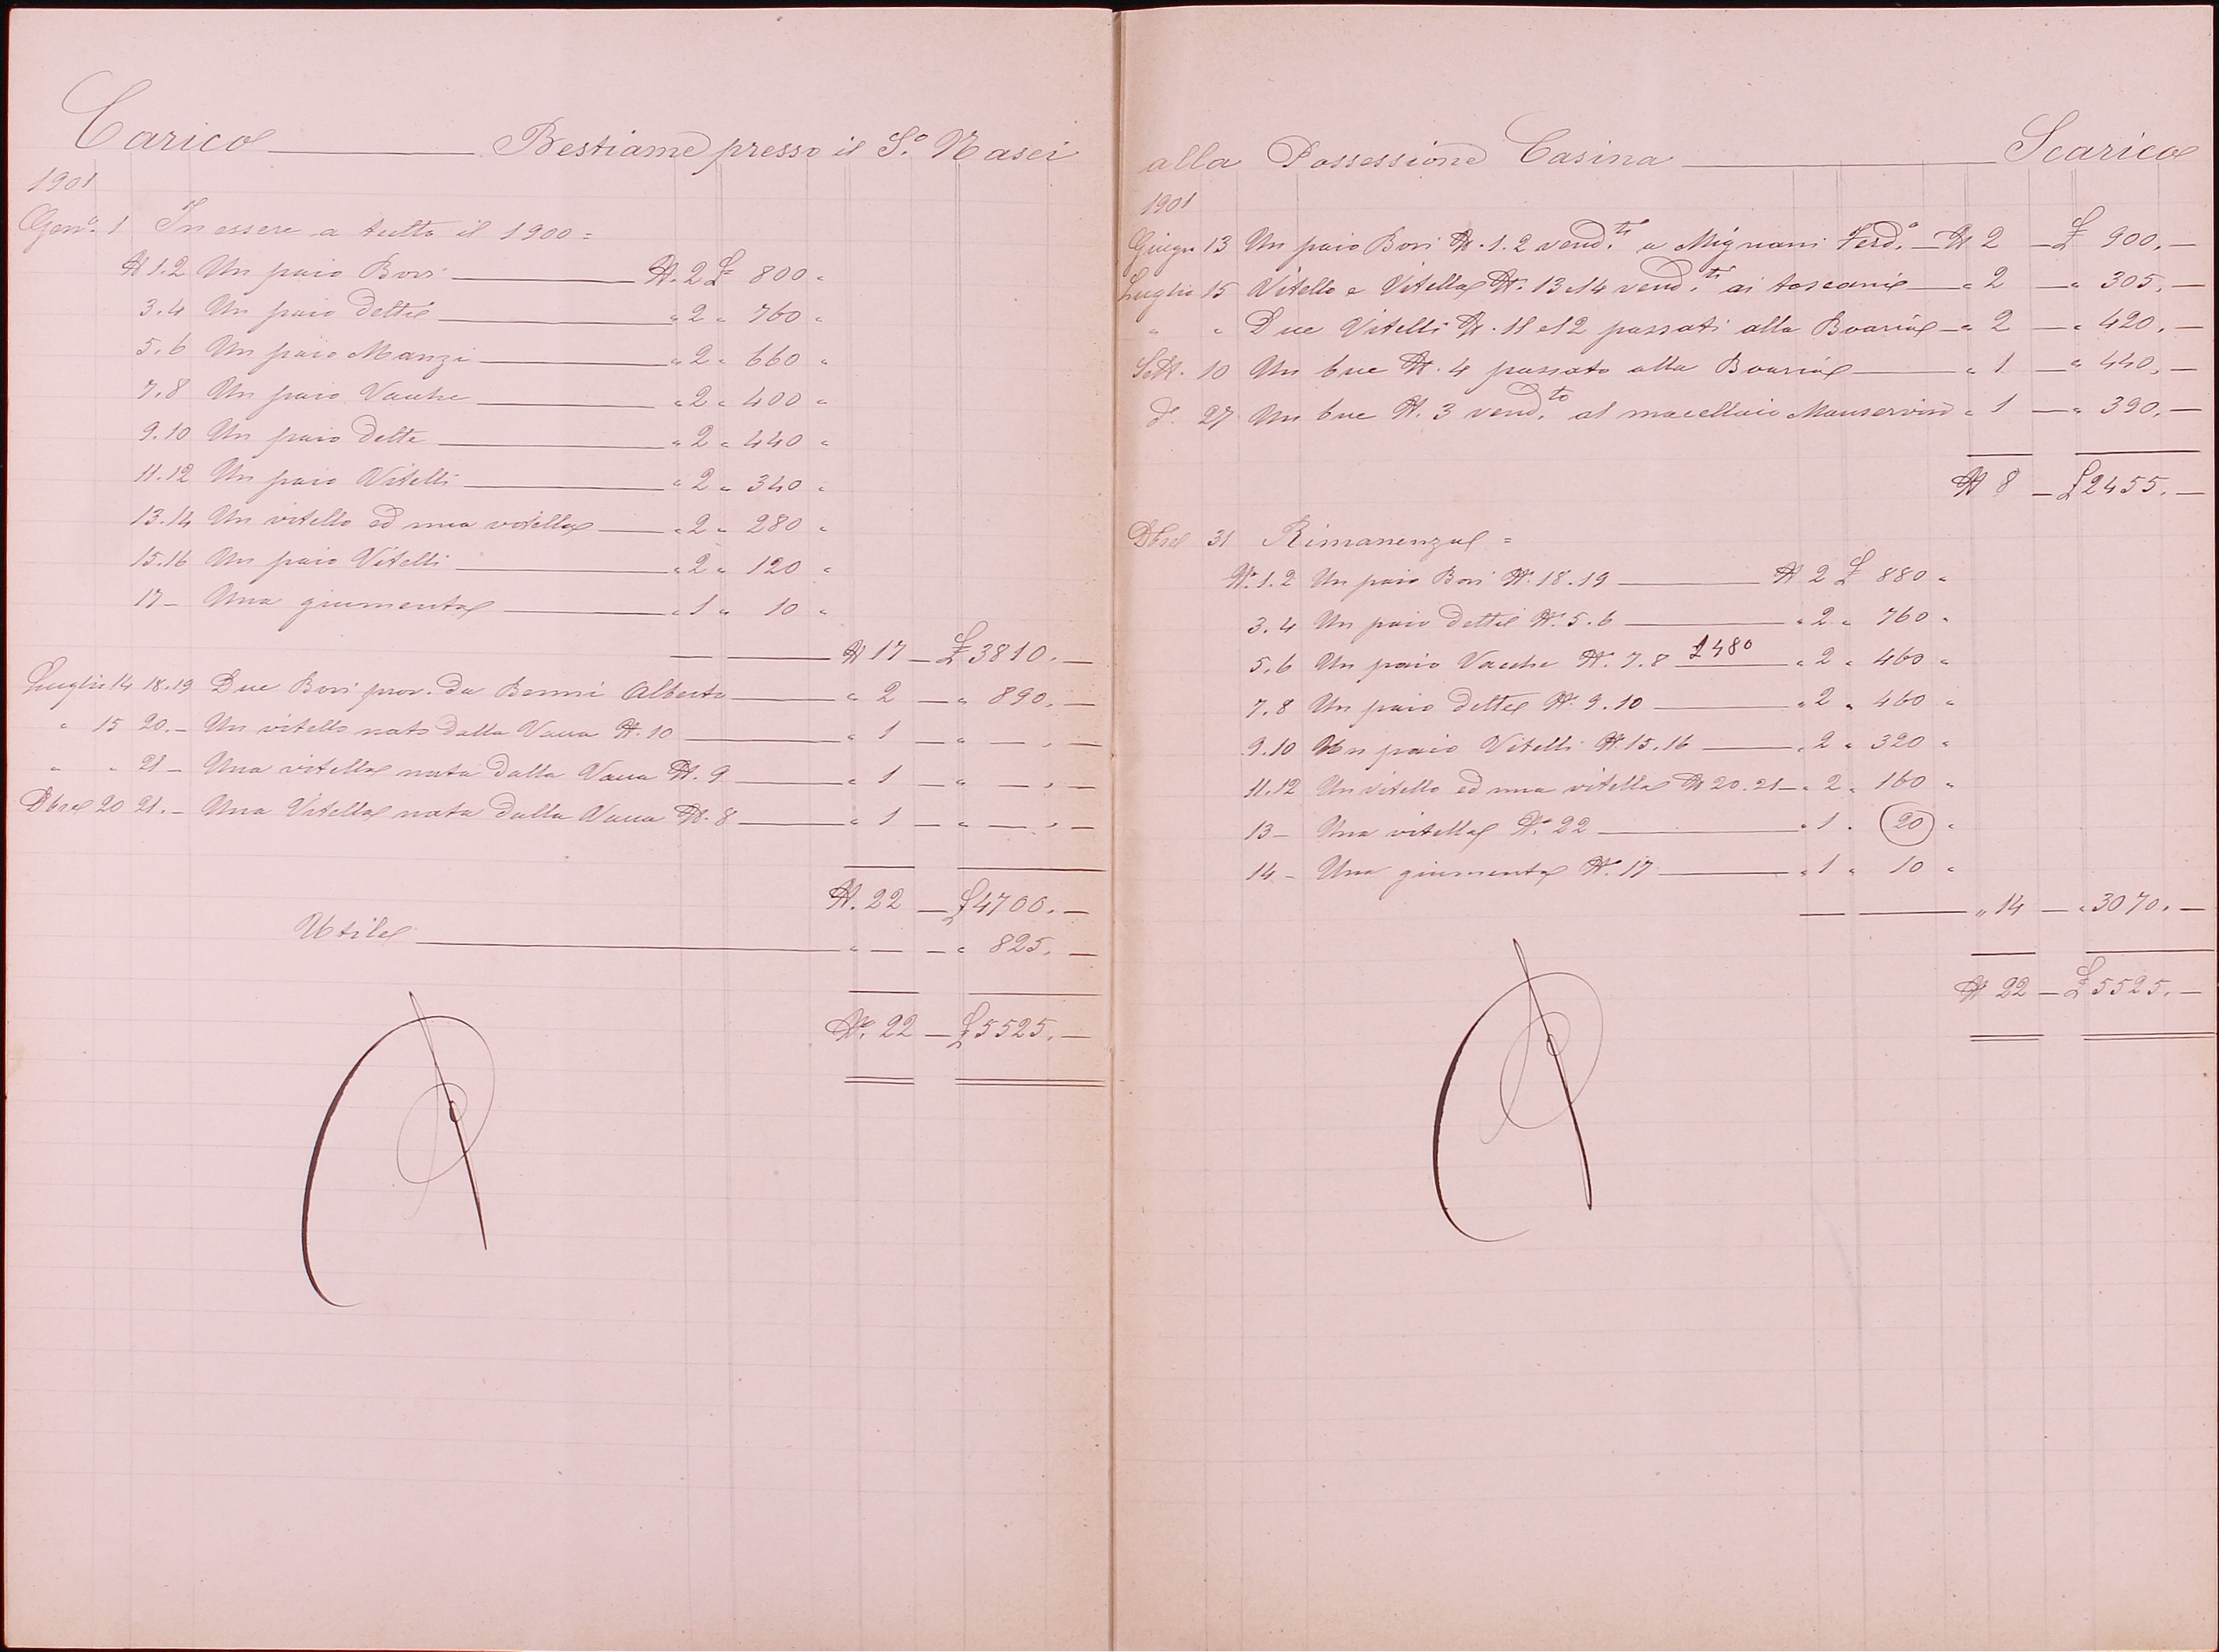 Carico — Bestiame presso il S.º Nasci
1901
Gen.º 1 In essere a tutto il 1900 =
N 1.2 Un paio Bovi — N. 2 £ 800 "
3.4 Un paio detti — " 2 " 760 "
5.6 Un paio Manzi — " 2 " 660 "
7.8 Un paio Vacche — " 2 " 400 "
9.10 Un paio dette — " 2 " 440 "
11.12 Un paio Vitelli — " 2 " 340 "
13.14 Un vitello ed una vitella — " 2 " 280 "
15.16 Un paio Vitelli — " 2 " 120 "
17 — Una giumenta — " 1 " 10 "
— N 17 — £ 3810. —
Luglio 14 18.19 Due Bovi prov. da Benni Alberto — " 2 — " 890. —
" 15 20. — Un vitello nato dalla Vacca N. 10 — " 1 — " — . —
" " 21 — Una vitella nata dalla Vacca N. 9 — " 1 — " — . —
Dbre 20 21. — Una Vitella nata dalla Vacca N. 8 — " 1 — " — . —
N. 22 — £ 4700. —
Utile — " — — " 825. —
Nº. 22 — £ 5525. —
alla Possessione Casina — Scarico
1901
Giugn 13 Un paio Bovi N. 1.2 vend.ti a Mignani Ferd.º — N 2 — £ 900. —
Luglio 15 Vitello e Vitella N. 13.14 vend.ti ai toscani — " 2 — " 305. —
" " Due Vitelli N. 11 e 12 passati alla Boaria — " 2 — " 420. —
Sett. 10 Un bue N. 4 passato alla Boaria — " 1 — " 440. —
d. 27 Un bue N. 3 vend.to al macellaio Manservisi " 1 — " 390. —
N 8 — £ 2455. —
Dbre 31 Rimanenza =
N. 1.2 Un paio Bovi N. 18.19 — N 2 £ 880 "
3.4 Un paio detti N. 5.6 — " 2 " 760 "
5.6 Un paio Vacche N. 7.8 £ 480 — " 2 " 460 "
7.8 Un paio dette N. 9.10 — " 2 " 460 "
9.10 Un paio Vitelli N. 15.16 — " 2 " 320 "
11.12 Un vitello ed una vitella N 20.21 — " 2 " 160 "
13 — Una vitella N. 22 — " 1 " 20 "
14 — Una giumenta N. 17 — " 1 " 10 "
— " 14 — " 3070. —
N 22 — £ 5525. —